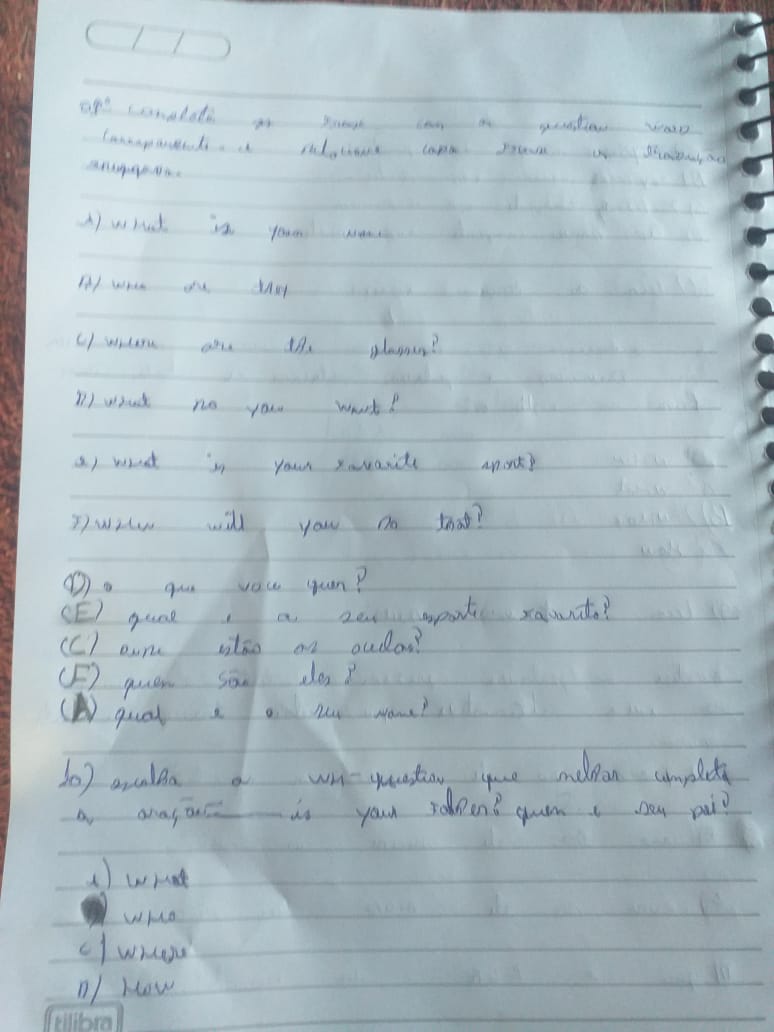 09° complete as frases com a question word
correspondente e relacione cada frase a tradução
adequada.
A) What is your name
B) Who are they
C) Where are the glasses?
D) What do you want?
E) What is your favorite sport?
F) When will you do that?
(D) o que você quer?
(E) qual é o seu esporte favorito?
(C) onde estão os oculos?
(F) quem são eles?
(A) qual e o seu nome?
10) escolha a WH-question que melhor completa
a oração is your father? quem é seu pai?
A) WHAT
WHO
C) WHERE
D) HOW
tilibra